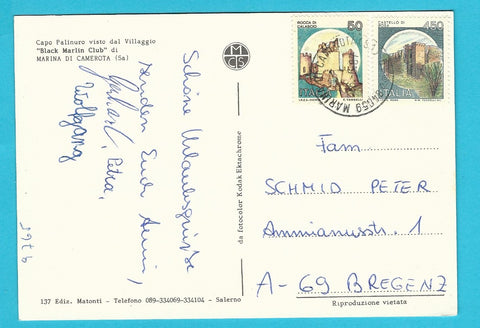 Capo Palinuro visto dal Villaggio
"Black Marlin Club" di
MARINA DI CAMEROTA (Sa)
MCS
ROCCA DI
CALASCIO
50
ITALIA
CASTELLO DI
450
ITALIA
84059 MARINA
Schöne Urlaubsgrüsse
senden Euch Anni,
Gerhard, Petra,
Wolfgang
da fotocolor Kodak Ektachrome
Fam.
SCHMID PETER
Ammianusstr. 1
A-69 BREGENZ
137 Ediz. Matonti - Telefono 089-334069-334104 - Salerno
Riproduzione vietata